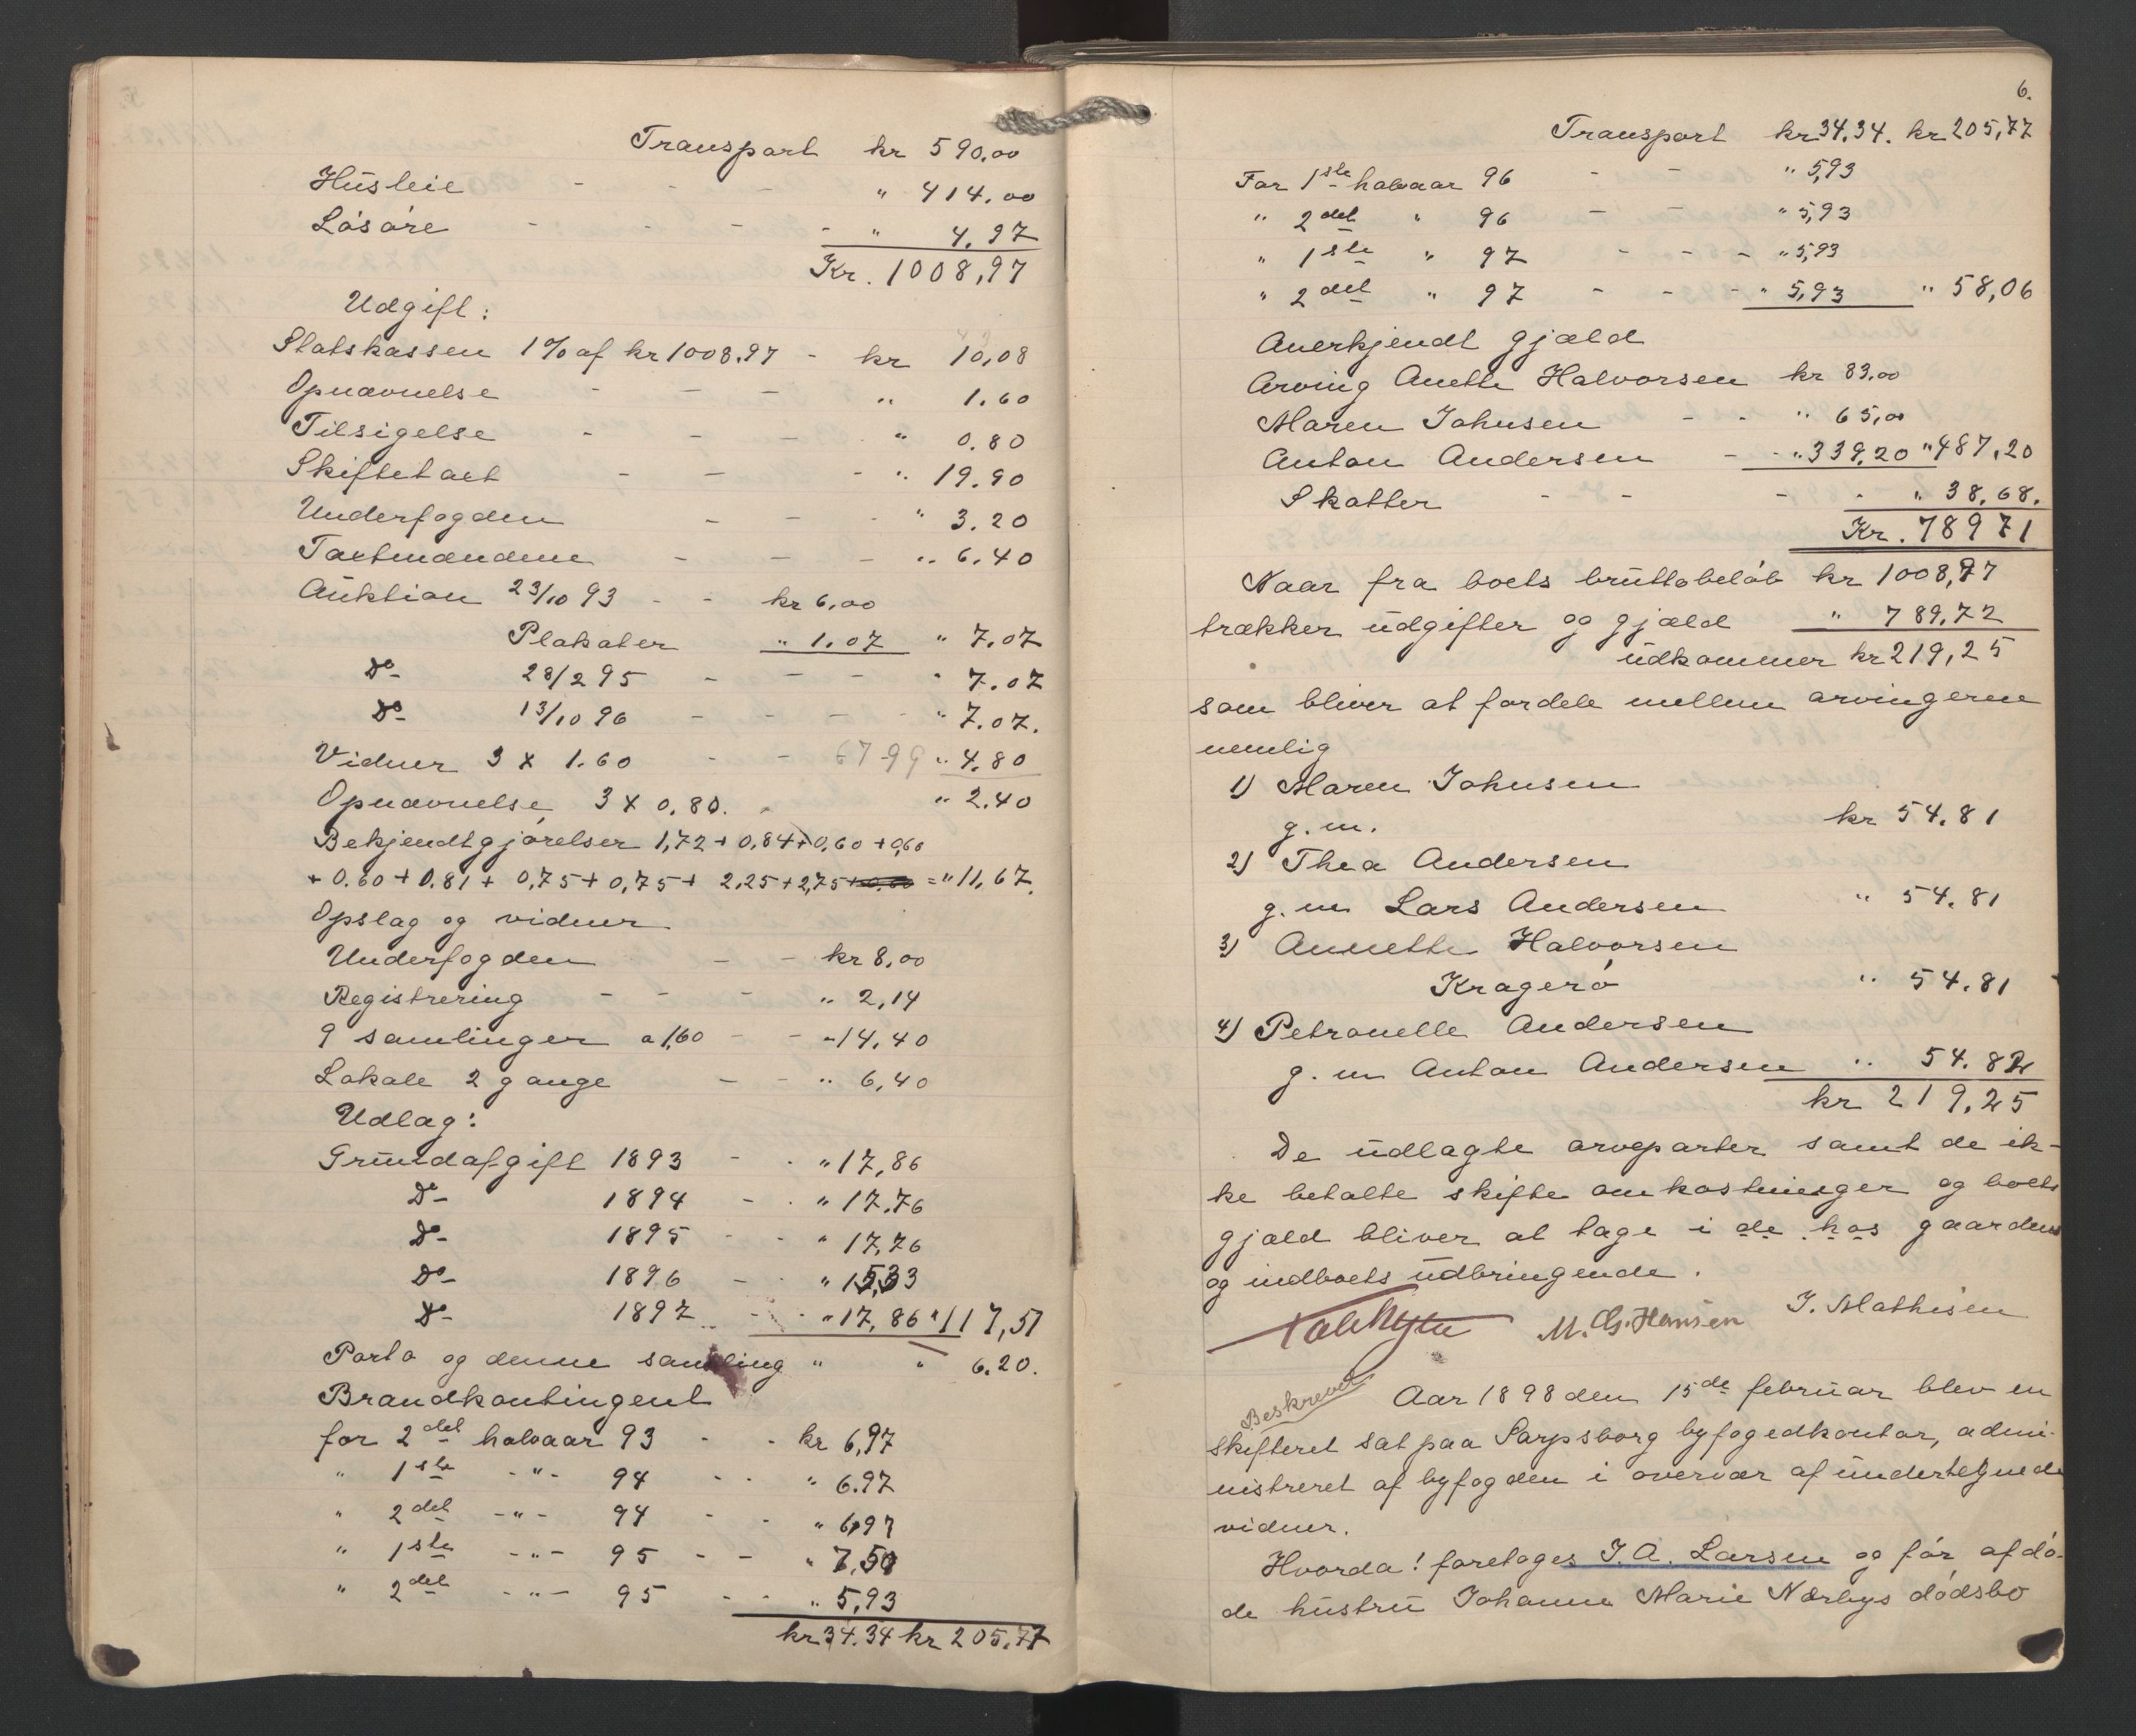 Transport kr 590.00
Húsleie - - - " 414.00
Lösöre - - - - " 4.97
Kr. 1008,97
Udgift:
Statskassen 1% af kr 1008.97 - kr 10,08
Opnævnelse - - - " 1.60
Tilsigelse - - - " 0.80
Skiftetaet - - - " 19.90
Underfogden - - - " 3.20
Taxtmændene - - - " 6.40
Aúktion 23/10 93 - - kr 6,00
Plakater " 1.07 " 7.07
Do 28/2 95 - - - " 7.07
Do 13/10 96 - - - - " 7.07.
Vidner 3 x 1.60 - - 67-99 " 4.80
Opnævnelse 3 x 0,80. - " 2.40
Bekjendtgjörelser 1,72 + 0,84 + 0,60 + 0,60
+ 0.60 + 0.81 + 0,75 + 0,75 + 2,25 + 2,75 = " 11,67.
Opslag og vidner
Underfogden - - kr 8,00
Registrering - - - " 2,14
9 samlinger a 1,60 - - " 14.40
Lokale 2 gange - - " 6,40
Udlag:
Grúndafgift 1893 - - " 17,86
Do 1894 - - " 17.76
Do 1895 - - " 17,76
Do 1896 - - " 15,33
Do 1897 - - " 17,86 " 117,51
Porto og denne samling " " 6.20.
Brandkontingent
for 2det halvaar 93 - - kr 6,97
" 1ste -"- 94 - - " 6.97
" 2det -"- 94 - - " 6,97
" 1ste -"- 95 - - " 7,50
" 2det -"- 95 - - " 5,93
kr 34.34 kr 205.77
6.
Transport kr 34.34. kr 205,77
For 1ste halvaar 96 - - " 5,93
" 2det " 96 - - " 5,93
" 1ste " 97 - - - " 5,93
" 2det " 97 - - - " 5,93 " 58,06
Anerkjendt gjæld
Arving Anette Halvorsen kr 83.00
Maren Johnsen - - " 65,00
Anton Andersen - - " 339,20 " 487,20
Skatter - - - - " 38.68.
Kr. 789 71
Naar fra boets brúttobelöb kr 1008,97
trækker údgifter og gjæld " 789,72
údkommer kr 219,25
som bliver at fordele mellem arvingerne
nemlig
1) Maren Johnsen
g. m. kr 54.81
2) Thea Andersen
g. m Lars Andersen " 54.81
3) Annette Halvorsen
Kragerö " 54.81
4) Petronelle Andersen
g. m Anton Andersen " 54.82
kr 219,25
De údlagte arveparter samt de ik-
ke betalte skifte omkostninger og boets
gjæld bliver at tage i de hos gaarden
og indboets údbringende.
M. Chr. Hansen J. Mathisen
Beskrevet
Aar 1898 den 15de februar blev en
skifteret sat paa Sarpsborg byfogedkontor, admi-
nistreret af byfogden i overvær af úndertegnede
vidner.
Hvorda! foretoges J. A. Larsen og för afdö-
de hústrú Johanne Marie Nærbys dödsbo